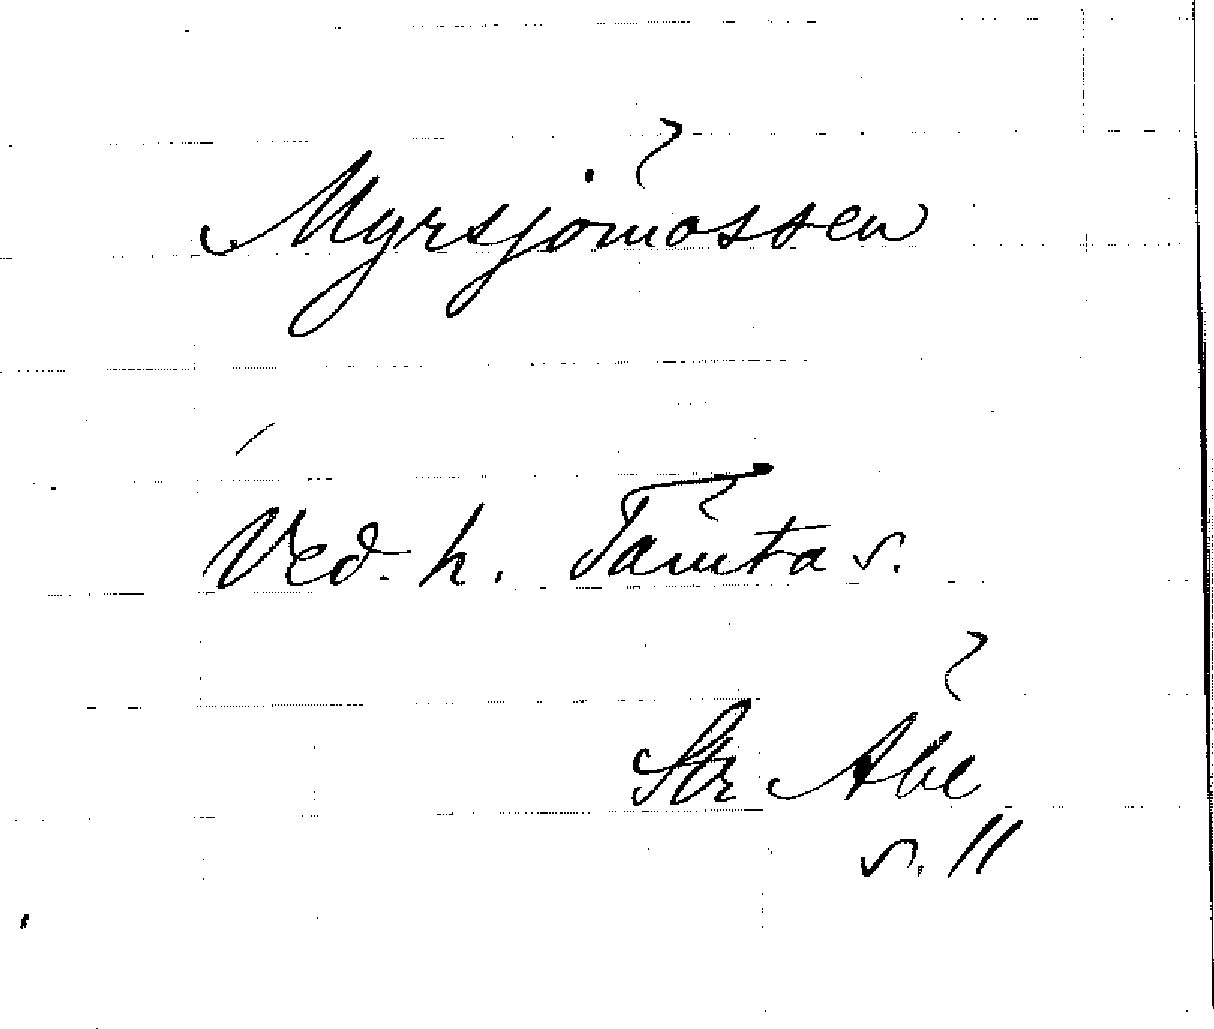 Myrsjömossen
Ved. h. Tämta s.
Str Äbe
s. 11